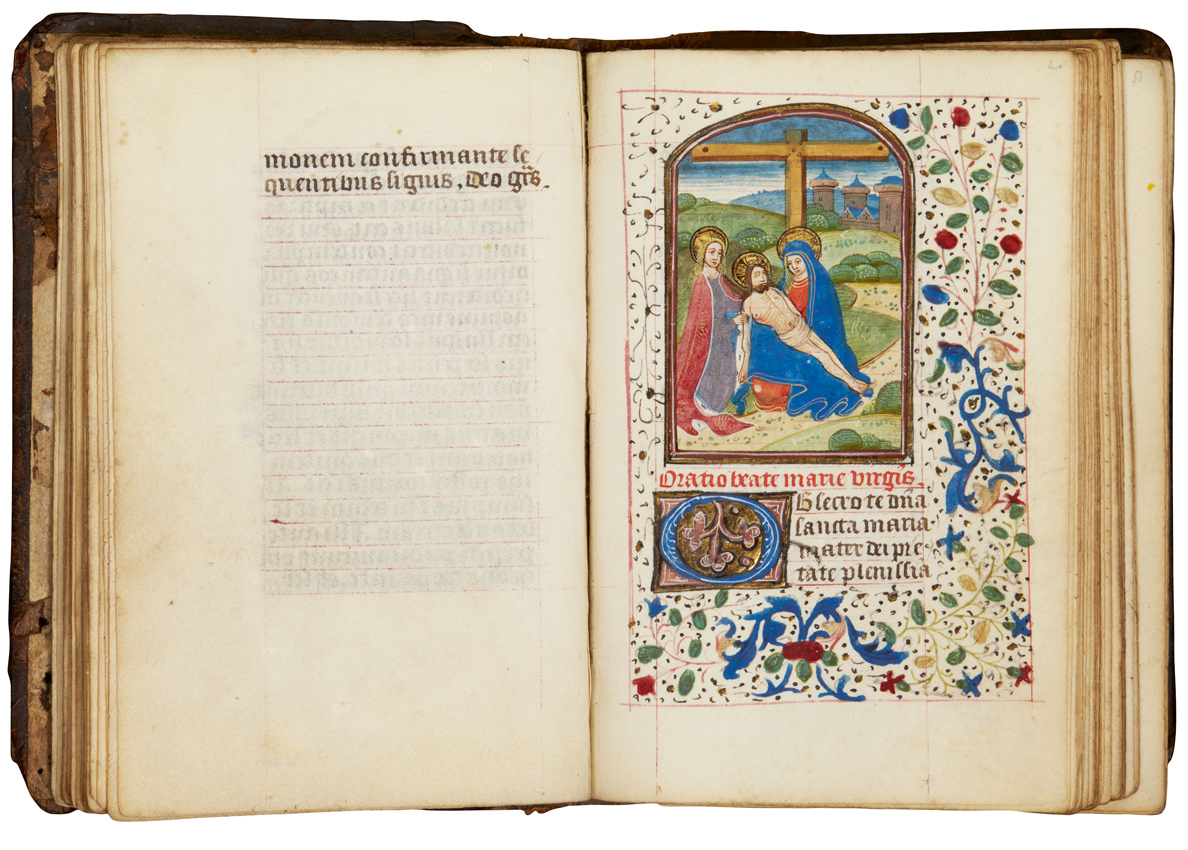 monem confirmante se
quentibus signis. Deo gr̃s.
Oratio beate marie virgĩs.
Obsecro te dña
sancta maria
mater dei pie
tate plenissĩa